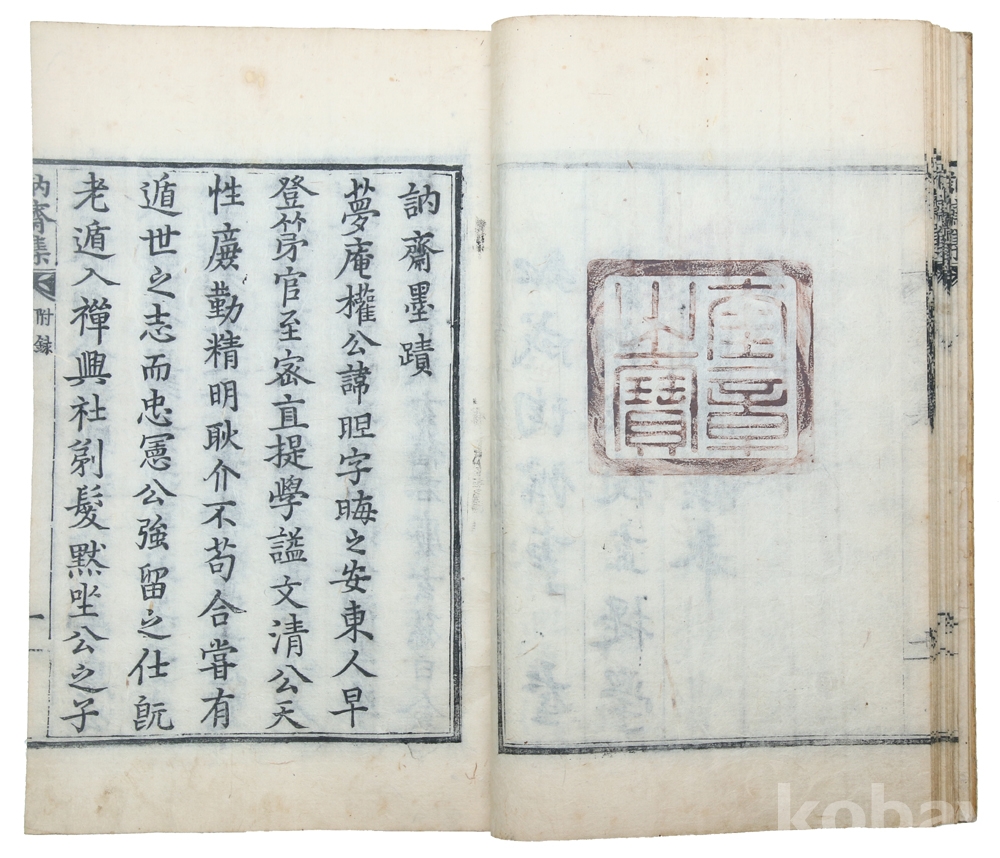 奎章
之寶
訥齋墨蹟
夢庵權公諱㫜字晦之安東人早
登第官至密直提學謚文清公天
性廉勤精明耿介不苟合嘗有
遁世之志而忠憲公強留之仕旣
老遁入禪興社剃髮黙坐公之子
訥齋集 附錄 一
kobay